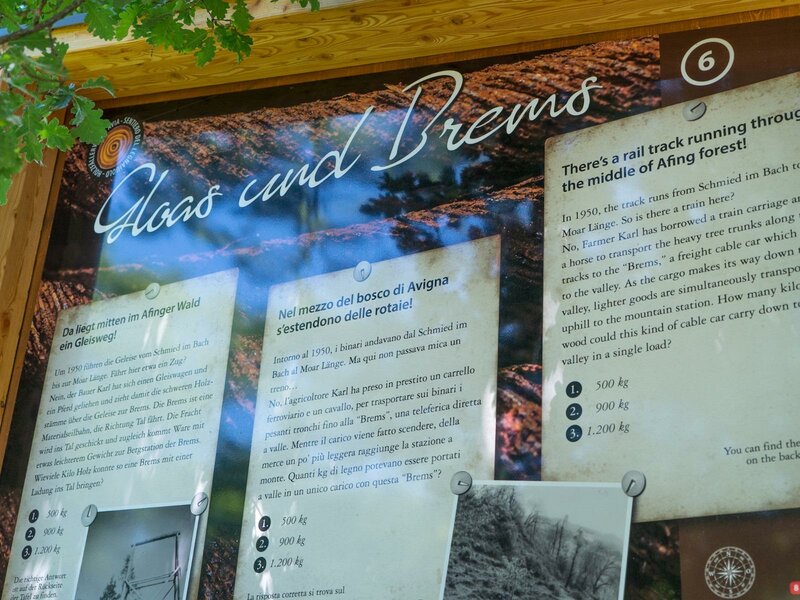 6
Gloas und Brems
Da liegt mitten im Afinger Wald
ein Gleisweg!
Um 1950 führen die Geleise vom Schmied im Bach
bis zur Moar Länge. Fährt hier etwa ein Zug?
Nein, der Bauer Karl hat sich einen Gleiswagen und
ein Pferd geliehen und zieht damit die schweren Holz-
stämme über die Geleise zur Brems. Die Brems ist eine
Materialseilbahn, die Richtung Tal fährt. Die Fracht
wird ins Tal geschickt und zugleich kommt Ware mit
etwas leichterem Gewicht zur Bergstation der Brems.
Wieviele Kilo Holz konnte so eine Brems mit einer
Ladung ins Tal bringen?
1. 500 kg
2. 900 kg
3. 1.200 kg
Die richtige Antwort
ist auf der Rückseite
der Tafel zu finden.
Nel mezzo del bosco di Avigna
s'estendono delle rotaie!
Intorno al 1950, i binari andavano dal Schmied im
Bach al Moar Länge. Ma qui non passava mica un
treno...
No, l'agricoltore Karl ha preso in prestito un carrello
ferroviario e un cavallo, per trasportare sui binari i
pesanti tronchi fino alla "Brems", una teleferica diretta
a valle. Mentre il carico viene fatto scendere, della
merce un po' più leggera raggiunge la stazione a
monte. Quanti kg di legno potevano essere portati
a valle in un unico carico con questa "Brems"?
1. 500 kg
2. 900 kg
3. 1.200 kg
La risposta corretta si trova sul
There's a rail track running through
the middle of Afing forest!
In 1950, the track runs from Schmied im Bach to
Moar Länge. So is there a train here?
No, Farmer Karl has borrowed a train carriage an
a horse to transport the heavy tree trunks along
tracks to the "Brems," a freight cable car which
to the valley. As the cargo makes its way down t
valley, lighter goods are simultaneously transpo
uphill to the mountain station. How many kilo
wood could this kind of cable car carry down to
valley in a single load?
1. 500 kg
2. 900 kg
3. 1.200 kg
You can find the
on the back
8